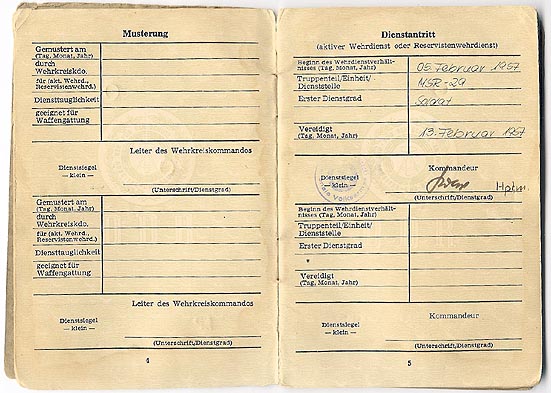 Musterung
Gemustert am
(Tag, Monat, Jahr)
durch
Wehrkreiskdo.
für (akt. Wehrd.,
Reservistenwehrd.)
Diensttauglichkeit
geeignet für
Waffengattung
Leiter des Wehrkreiskommandos
Dienstsiegel
— klein —
(Unterschrift/Dienstgrad)
Gemustert am
(Tag, Monat, Jahr)
durch
Wehrkreiskdo.
für (akt. Wehrd.,
Reservistenwehrd.)
Diensttauglichkeit
geeignet für
Waffengattung
Leiter des Wehrkreiskommandos
Dienstsiegel
— klein —
(Unterschrift/Dienstgrad)
4
Dienstantritt
(aktiver Wehrdienst oder Reservistenwehrdienst)
Beginn des Wehrdienstverhält-
nisses (Tag, Monat, Jahr)
05. Februar 1957
Truppenteil/Einheit/
Dienststelle
MSR-29
Erster Dienstgrad
Soldat
Vereidigt
(Tag, Monat, Jahr)
13. Februar 1957
Kommandeur
Dienstsiegel
— klein —
Hptm.
(Unterschrift/Dienstgrad)
Beginn des Wehrdienstverhält-
nisses (Tag, Monat, Jahr)
Truppenteil/Einheit/
Dienststelle
Erster Dienstgrad
Vereidigt
(Tag, Monat, Jahr)
Kommandeur
Dienstsiegel
— klein —
(Unterschrift/Dienstgrad)
5